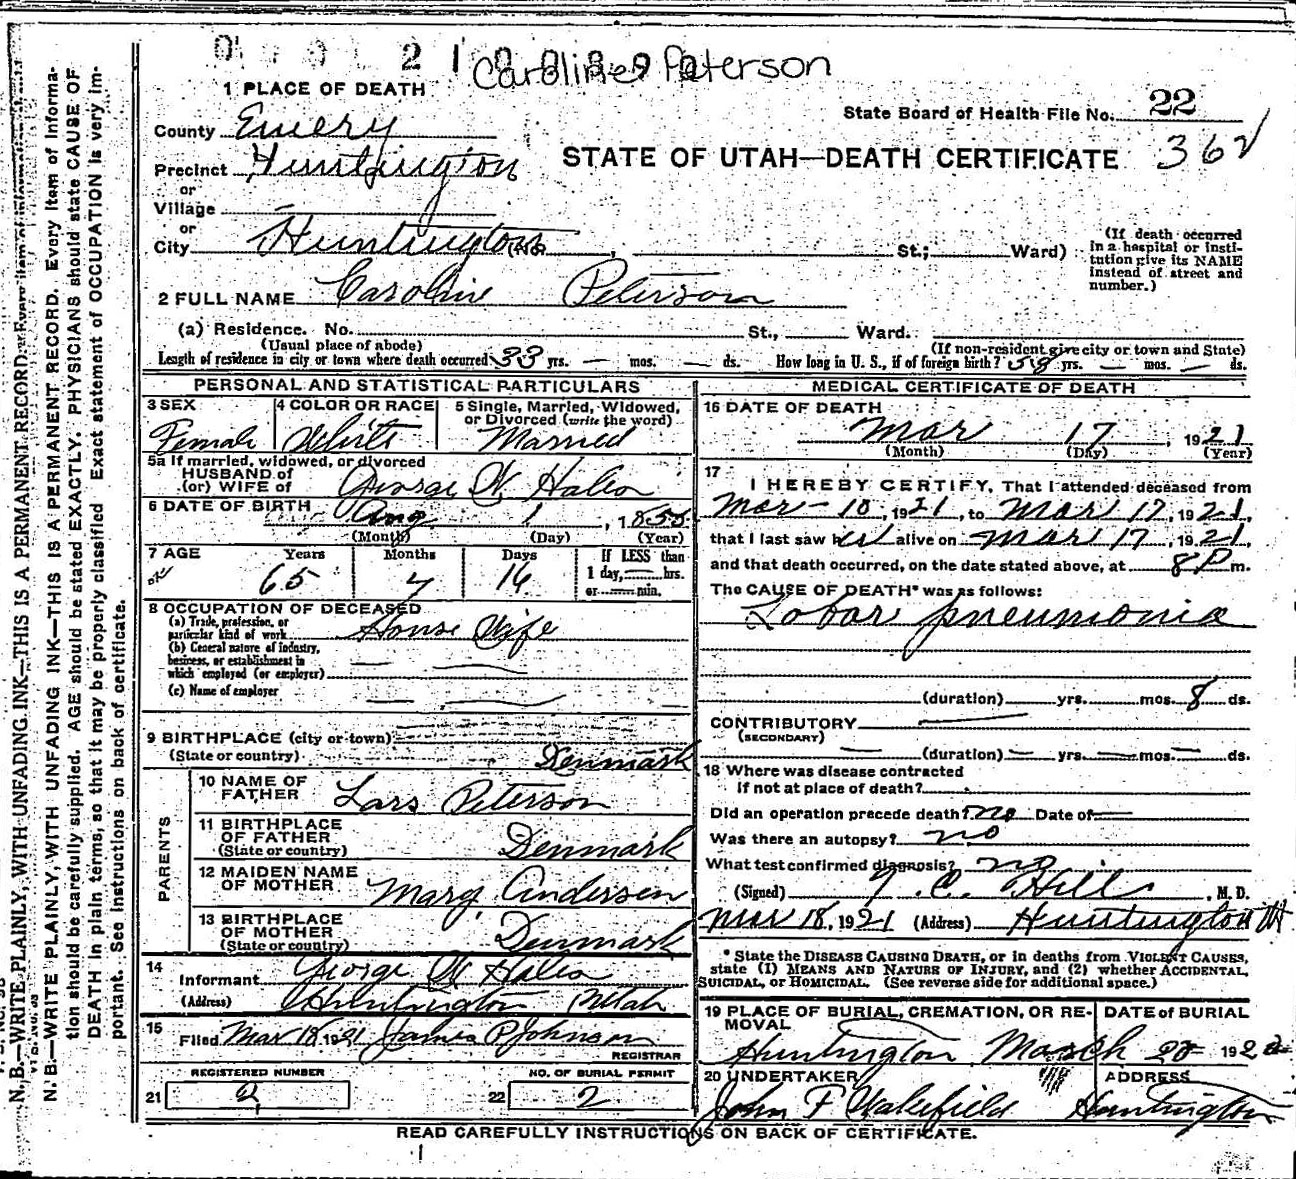 21
Caroline Peterson
1 PLACE OF DEATH
State Board of Health File No. 22
County Emery
362
Precinct Huntington
STATE OF UTAH—DEATH CERTIFICATE
or
Village
or
City Huntington (No. , St.; Ward)
(If death occurred in a hospital or institution give its NAME instead of street and number.)
2 FULL NAME Caroline Peterson
(a) Residence. No. St., Ward.
(Usual place of abode) (If non-resident give city or town and State)
Length of residence in city or town where death occurred 33 yrs. — mos. — ds. How long in U. S., if of foreign birth? 58 yrs. — mos. — ds.
PERSONAL AND STATISTICAL PARTICULARS
3 SEX
Female
4 COLOR OR RACE
White
5 Single, Married, Widowed, or Divorced (write the word)
Married
5a If married, widowed, or divorced
HUSBAND of
(or) WIFE of George W
6 DATE OF BIRTH Aug 1, 1855
(Month) (Day) (Year)
7 AGE Years Months Days If LESS than
65 7 16 1 day, — hrs.
or — min.
8 OCCUPATION OF DECEASED
(a) Trade, profession, or particular kind of work House Wife
(b) General nature of industry, business, or establishment in which employed (or employer)
(c) Name of employer
9 BIRTHPLACE (city or town)
(State or country) Denmark
PARENTS
10 NAME OF FATHER Lars Peterson
11 BIRTHPLACE OF FATHER
(State or country) Denmark
12 MAIDEN NAME OF MOTHER Mary Andersen
13 BIRTHPLACE OF MOTHER
(State or country) Denmark
14 Informant George W
(Address) Huntington Utah
15 Filed Mar 18, 1921 James P Johnson
REGISTRAR
REGISTERED NUMBER
21 2
NO. OF BURIAL PERMIT
22 2
MEDICAL CERTIFICATE OF DEATH
16 DATE OF DEATH
Mar 17, 1921
(Month) (Day) (Year)
17
I HEREBY CERTIFY, That I attended deceased from
Mar 10, 1921, to Mar 17, 1921,
that I last saw her alive on Mar 17, 1921,
and that death occurred, on the date stated above, at 8 P m.
The CAUSE OF DEATH* was as follows:
Lobar pneumonia
(duration) yrs. mos. 8 ds.
CONTRIBUTORY —
(SECONDARY)
— (duration) — yrs. — mos. — ds.
18 Where was disease contracted
if not at place of death?
Did an operation precede death? no Date of —
Was there an autopsy? no
What test confirmed diagnosis? no
(Signed) C. Hill, M. D.
Mar 18, 1921 (Address) Huntington Ut
* State the DISEASE CAUSING DEATH, or in deaths from VIOLENT CAUSES, state (1) MEANS AND NATURE OF INJURY, and (2) whether ACCIDENTAL, SUICIDAL, or HOMICIDAL. (See reverse side for additional space.)
19 PLACE OF BURIAL, CREMATION, OR REMOVAL
Huntington
DATE of BURIAL
March 20 192
20 UNDERTAKER
John F Wakefield
ADDRESS
Huntington
READ CAREFULLY INSTRUCTIONS ON BACK OF CERTIFICATE.
N. B.—WRITE PLAINLY, WITH UNFADING INK—THIS IS A PERMANENT RECORD. Every item of information should be carefully supplied. AGE should be stated EXACTLY. PHYSICIANS should state CAUSE OF DEATH in plain terms, so that it may be properly classified. Exact statement of OCCUPATION is very important. See instructions on back of certificate.
N. B.—WRITE PLAINLY, WITH UNFADING INK—THIS IS A PERMANENT RECORD.